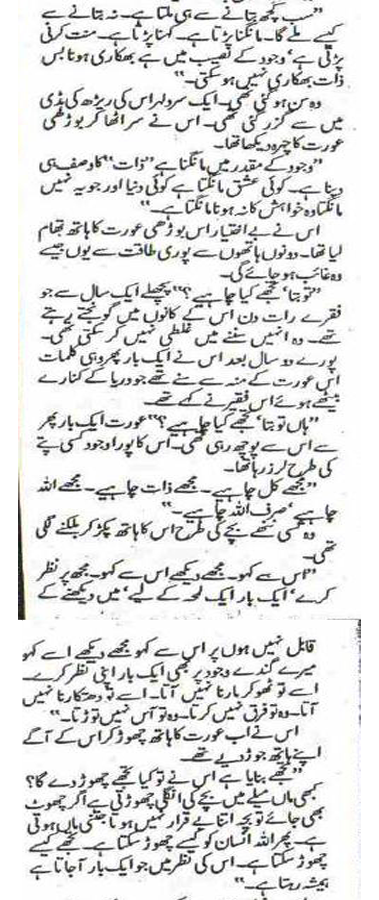 "سب کچھ بتانے سے ہی ملتا ہے۔ نہ بتانے سے
کیسے ملے گا۔ مانگنا پڑتا ہے۔ کہنا پڑتا ہے۔ منت کرنی
پڑتی ہے' وجود کے نصیب میں ہے بھکاری ہونا بس
ذات بھکاری نہیں ہو سکتی۔"
وہ سن ہو گئی تھی۔ ایک سرد لہر اس کی ریڑھ کی ہڈی
میں سے گزر گئی تھی۔ اس نے سر اٹھا کر بوڑھی
عورت کا چہرہ دیکھا تھا۔
"وجود کے مقدر میں مانگنا ہے "ذات" کا وصف ہی
دینا ہے۔ کوئی عشق مانگتا ہے کوئی دنیا اور جو یہ نہیں
مانگتا وہ خواہش کا نہ ہونا مانگتا ہے۔"
اس نے بے اختیار اس بوڑھی عورت کا ہاتھ تھام
لیا تھا۔ دونوں ہاتھوں سے پوری طاقت سے یوں جیسے
وہ غائب ہو جائے گی۔
"تو بتا' تجھے کیا چاہیے؟" پچھلے ایک سال سے جو
فقرے رات دن اس کے کانوں میں گونجتے رہتے
تھے۔ وہ انہیں سننے میں غلطی نہیں کر سکتی تھی۔
پورے دو سال بعد اس نے ایک بار پھر وہی کلمات
اس عورت کے منہ سے سنے تھے جو دریا کے کنارے
بیٹھے ہوئے اس فقیر نے کہے تھے۔
"ہاں تو بتا' تجھے کیا چاہیے؟" عورت ایک بار پھر
سے اس سے پوچھ رہی تھی۔ اس کا پورا وجود کسی پتے
کی طرح لرز رہا تھا۔
"مجھے کل چاہیے۔ مجھے ذات چاہیے۔ مجھے اللہ
چاہیے' صرف اللہ چاہیے۔"
وہ کسی ننھے بچے کی طرح اس کا ہاتھ پکڑ کر بلکنے لگی
تھی۔
"اس سے کہو۔ مجھے دیکھے اس سے کہو۔ مجھ پر نظر
کرے' ایک بار ایک لمحہ کے لیے' میں دیکھنے کے
قابل نہیں ہوں پر اس سے کہو مجھے دیکھے اسے کہو
میرے گندے وجود پر بھی ایک بار اپنی نظر کرے۔
اسے تو ٹھوکر مارنا نہیں آتا۔ اسے تو دھتکارنا نہیں
آتا۔ وہ تو فرق نہیں کرتا۔ وہ تو آس نہیں توڑتا۔"
اس نے اب عورت کا ہاتھ چھوڑ کر اس کے آگے
اپنے ہاتھ جوڑ دیے تھے۔
"تجھے بنایا ہے اس نے تو کیا تجھے چھوڑ دے گا؟
کبھی ماں میلے میں بچے کی انگلی چھوڑتی ہے اگر چھوٹ
بھی جائے تو بچہ اتنا بے قرار نہیں ہوتا جتنی ماں ہوتی
ہے۔ پھر اللہ انسان کو کیسے چھوڑ سکتا ہے۔ تجھے کیسے
چھوڑ سکتا ہے۔ اس کی نظر میں جو ایک بار آجاتا ہے
ہمیشہ رہتا ہے۔"